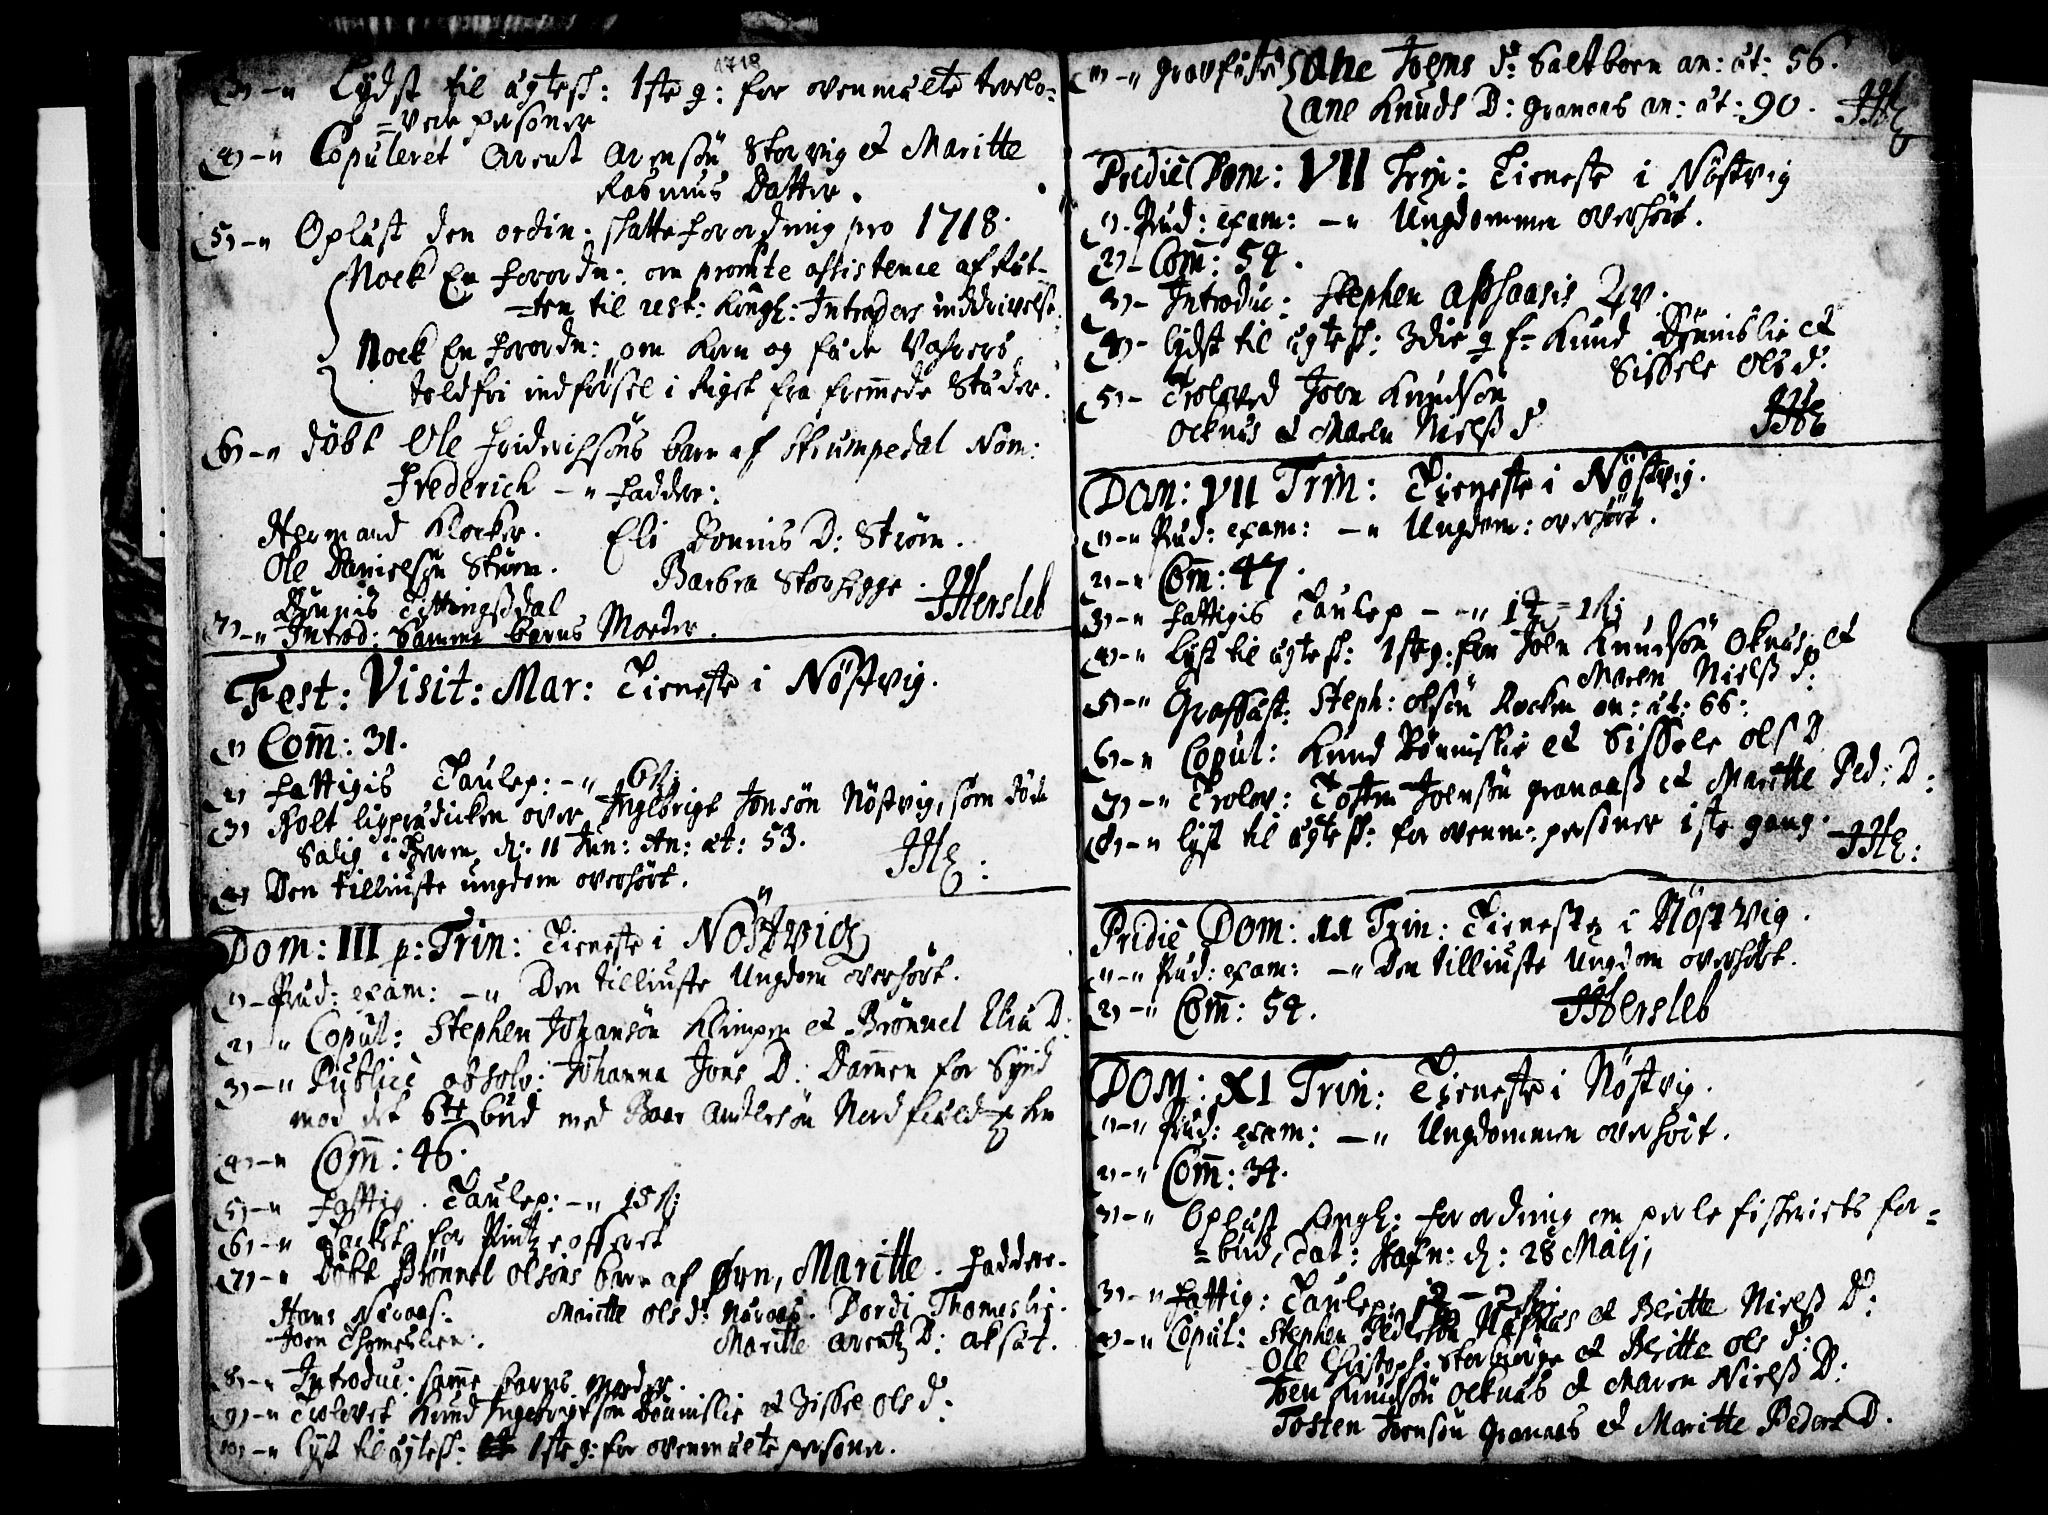 1718
3) -" Lydst til ægtesk: 1ste g: for ovenmælte trolo=
=vede personer
4) -" Copuleret Arent Arensön Storvig et Maritte
Rasmus Datter.
5) -" Oplæst den ordin. skatte forordning pro 1718.
Nock En forordn: om promte assistence af Ræt=
=ten til rest: Kongl: Intraders inddrivelse.
Nock En forordn: om Korn og føde Vahrers
toldfri indførsel i Riget fra fremmede Stæder.
6) -" Döbt Ole Friderichsöns barn af Skrumpedal Nom:
Frederich -" Fadder:
Hermand Klocker. Eli Bönnis D: Ström.
Ole Danielsön Ström. Barbra Storhegge.
Bönnis Tyttingsdal JHersleb
7) -" Introd: Samme barns Moeder.
Fest: Visit: Mar: Tieneste i Nöstvig.
1) Com̅: 31.
2) Fattigis Taulep: -" 6 sk:
3) Holt ligprædicken over Ingebrigt Jonsön Nöstvig, som döde
Salig i Herren d: 11 Jun: An: æt: 53.
4) Den tilliuste ungdom overhört. JHE:
Dom: III p: Trin: Tieneste i Nöstvig
1) - Præd: exam: -" Den tilliuste Ungdom overhört.
2) -" Copul: Stephen Johansön Klimpen et Brönnel Elia D:
3) -" Publice absolv: Johanna Jons D: Dammen for Synd
mod det 6te bud med Boar Andersön Nordfield
4) -" Com̅: 46.
5) -" Fattig. Taulep: -" 15 sk:
6) -" Tacket for offeret
7) -" Döbt Brönnel Olsöns barn af Øyn, Maritte. Faddere-
Hans Næraas. Maritte Ols d: Næraas. Dordi Thomeslie.
Joen Thomeslien. Maritte Arentz D: Aksæt.
8) -" Introduc: samme barns moeder.
9) -" Trolovet Knud Ingebrigtsön Bönnislie et Sissel Ols d:
10) -" Lyst til ægtesk: 1ste g: for ovenmælte personer.
11) -" Gravfæstet Ane Joens d: Saltboen an: æt: 56.
Ane Knuds D: Granaas an: æt: 90. JHE
Pridie Dom: VII Trin: Tieneste i Nöstvig
1) - Præd: exam: -" Ungdommen overhört.
2) - Com̅: 54.
3) - Introduc: Stephen Qv.
4) - Lydst til ægtesk: 3die g f= Knud Bönnislie et
Sissele Ols d:
5) - Trolovet Joen Knudsön
Ocknæs et Maren Nielss d JHE
Dom: VII Trin: Tieneste i Nöstvig.
1) -" Præd: exam: -" Ungdom: overhört.
2) -" Com̅: 47.
3) -" Fattigis Taulep -"
4) -" Lyst til ægtesk: 1ste g: for Joen Knudsön Oknæs et
Maren Nielss d:
5) -" Graffæst: Steph: Olsön Rocken an: æt: 66:
6) -" Copul: Knud Bönnislie et Sissele Ols D
7) -" Trolov: Tosten Joensön Granaass et Maritte Ped: D:
8) -" Lyst til ægtesk: for ovenm: personer 1ste gang. JHE:
Pridie Dom: XI Trin: Tieneste i Nöstvig.
1) -" Præd: exam: -" Den tilliuste Ungdom overhört.
2) -" Com̅: 54. JHersleb
Dom: XI Trin: Tieneste i Nöstvig.
1) -" Præd: exam: -" Ungdommen overhört.
2) -" Com̅: 34.
3) -" Oplæst Kongl: forordning om perle fiskeriets for=
=bud, Dat: Hafn: d: 28 Maij,
3) -" Fattig: Taulep:
4) -" Copul: Stephen Pedersön et Beritte Nielss D:
Ole Christoph: Storberge et Beritte Ols d:
Joen Knudsön Ocknæs et Maren Nielss D:
Tosten Joensön Granaas et Maritte Peders D.